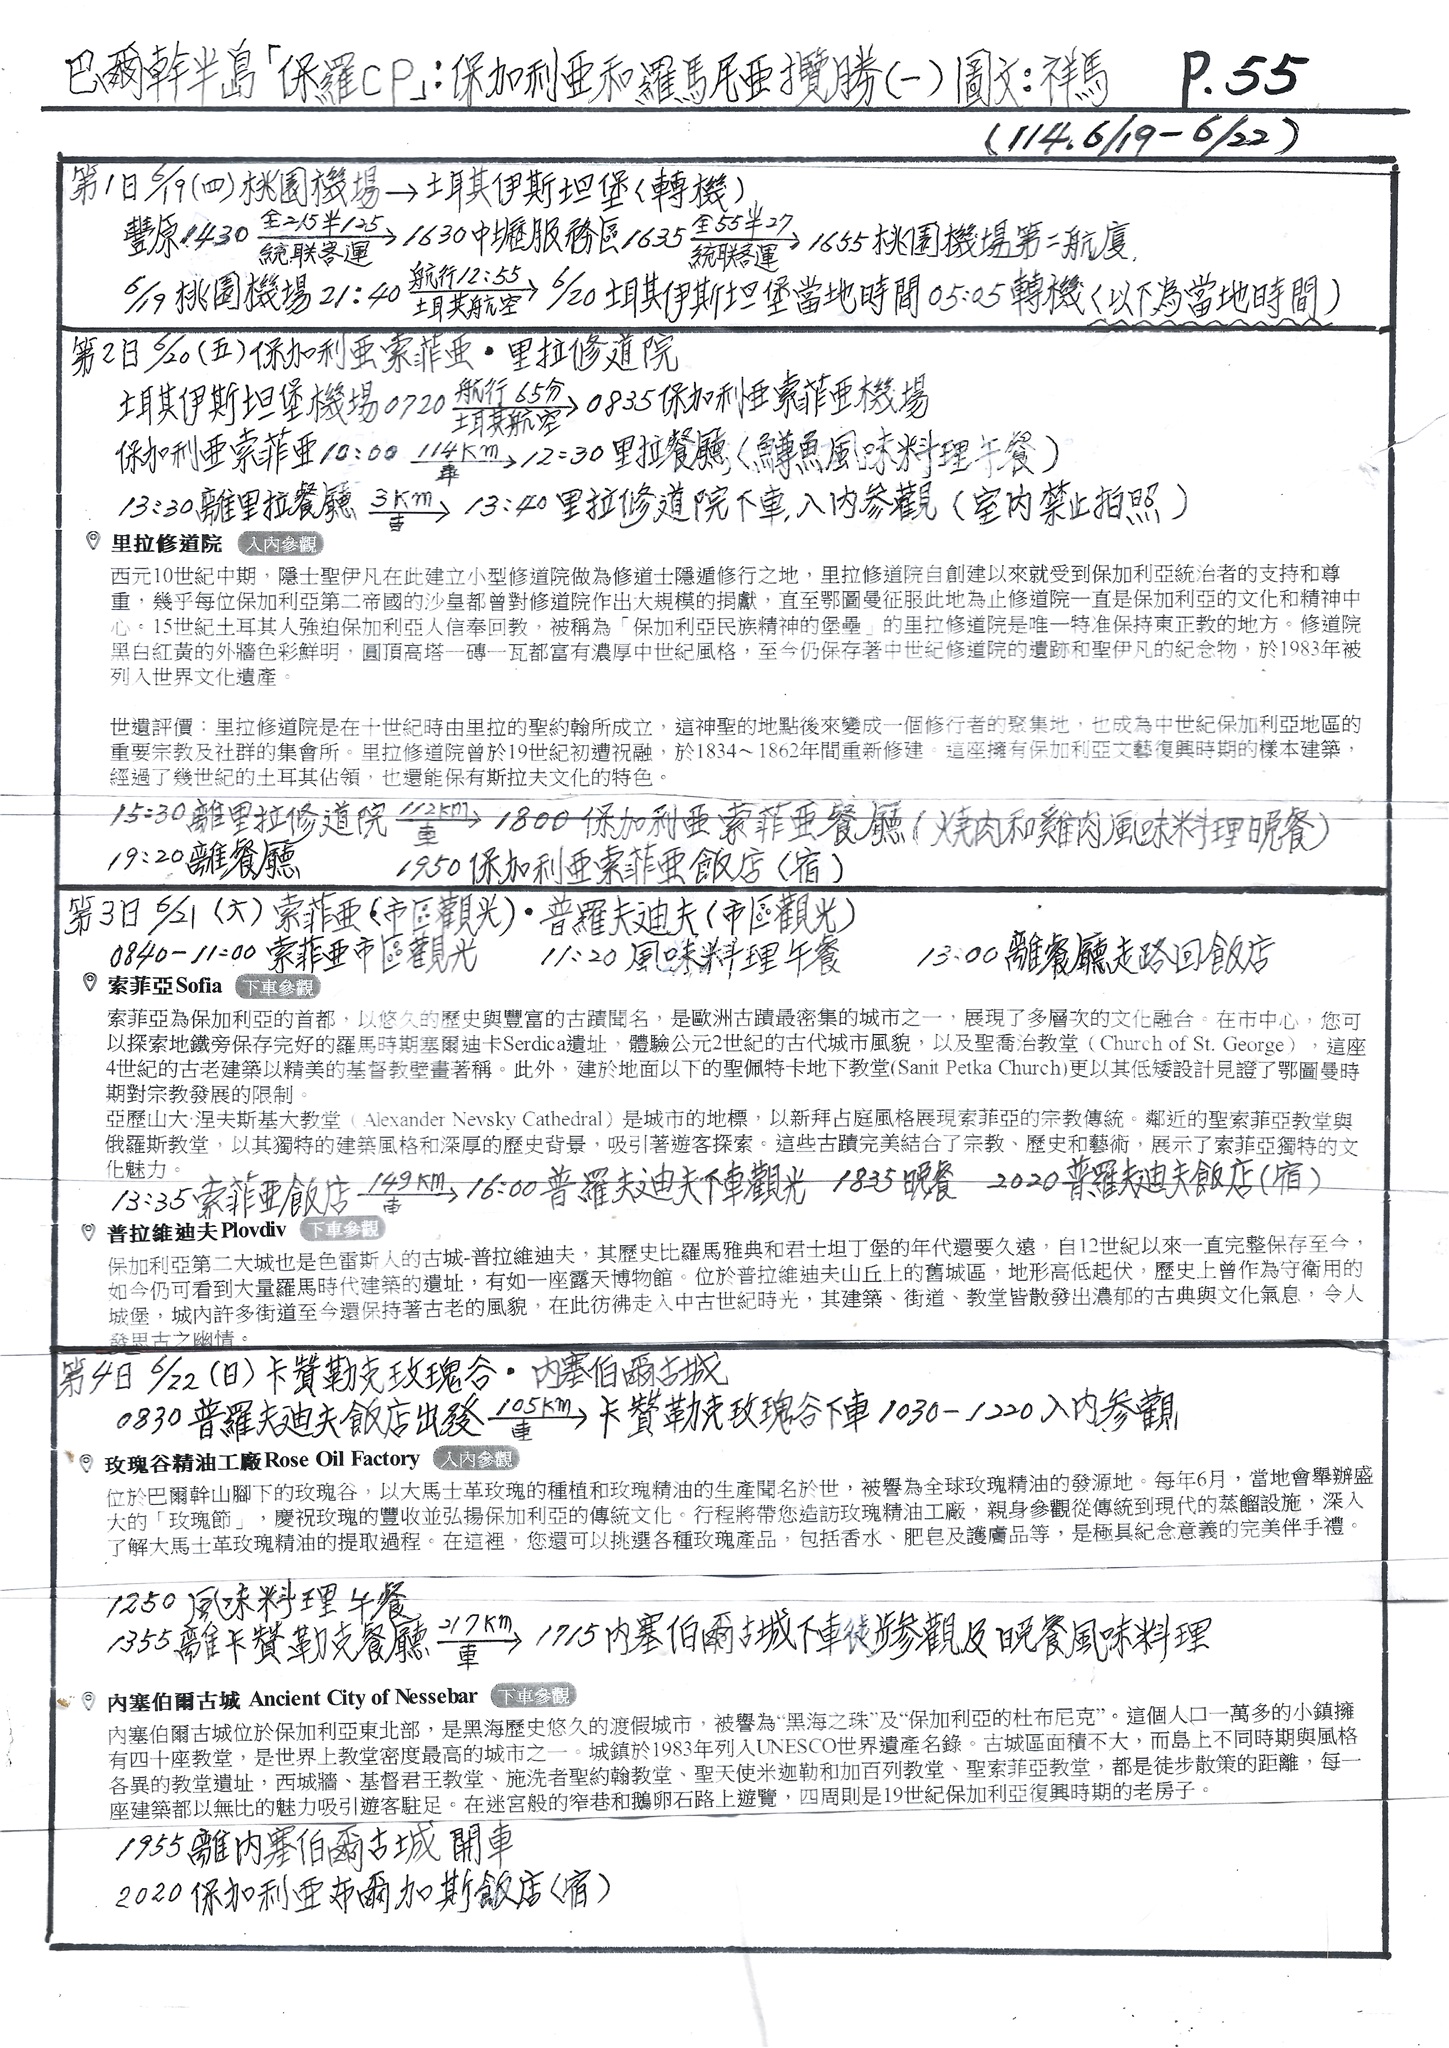 巴爾幹半島「保羅CP」：保加利亞和羅馬尼亞攬勝(一) 圖文：祥馬 P.55
(114.6/19-6/22)
第1日 6/19(四) 桃園機場→土耳其伊斯坦堡(轉機)
豐原1430 全215半125 統联客運 →1630中壢服務區1635 全55半27 統联客運 →1655桃園機場第二航廈.
6/19桃園機場21:40 航行12:55 土耳其航空 →6/20土耳其伊斯坦堡當地時間05:05轉機(以下為當地時間)
第2日 6/20(五) 保加利亞索菲亞·里拉修道院
土耳其伊斯坦堡機場0720 航行65分 土耳其航空 →0835保加利亞索菲亞機場
保加利亞索菲亞10:00 114KM 車 →12:30里拉餐廳(鱒魚風味料理午餐)
13:30離里拉餐廳 3KM 車 →13:40里拉修道院下車.入內參觀(室內禁止拍照)
里拉修道院 入內參觀
西元10世紀中期，隱士聖伊凡在此建立小型修道院做為修道士隱遁修行之地，里拉修道院自創建以來就受到保加利亞統治者的支持和尊
重，幾乎每位保加利亞第二帝國的沙皇都曾對修道院作出大規模的捐獻，直至鄂圖曼征服此地為止修道院一直是保加利亞的文化和精神中
心。15世紀土耳其人強迫保加利亞人信奉回教，被稱為「保加利亞民族精神的堡壘」的里拉修道院是唯一特准保持東正教的地方。修道院
黑白紅黃的外牆色彩鮮明，圓頂高塔一磚一瓦都富有濃厚中世紀風格，至今仍保存著中世紀修道院的遺跡和聖伊凡的紀念物，於1983年被
列入世界文化遺產。
世遺評價：里拉修道院是在十世紀時由里拉的聖約翰所成立，這神聖的地點後來變成一個修行者的聚集地，也成為中世紀保加利亞地區的
重要宗教及社群的集會所。里拉修道院曾於19世紀初遭祝融，於1834～1862年間重新修建。這座擁有保加利亞文藝復興時期的樣本建築，
經過了幾世紀的土耳其佔領，也還能保有斯拉夫文化的特色。
15:30離里拉修道院 112KM 車 →1800保加利亞索菲亞餐廳(燒肉和雞肉風味料理晚餐)
19:20離餐廳 1950保加利亞索菲亞飯店(宿)
第3日 6/21(六) 索菲亞(市區觀光)·普羅夫迪夫(市區觀光)
0840-11:00索菲亞市區觀光 11:20風味料理午餐 13:00離餐廳走路回飯店
索菲亞Sofia 下車參觀
索菲亞為保加利亞的首都，以悠久的歷史與豐富的古蹟聞名，是歐洲古蹟最密集的城市之一，展現了多層次的文化融合。在市中心，您可
以探索地鐵旁保存完好的羅馬時期塞爾迪卡Serdica遺址，體驗公元2世紀的古代城市風貌，以及聖喬治教堂（Church of St. George），這座
4世紀的古老建築以精美的基督教壁畫著稱。此外，建於地面以下的聖佩特卡地下教堂(Sanit Petka Church)更以其低矮設計見證了鄂圖曼時
期對宗教發展的限制。
亞歷山大·涅夫斯基大教堂（Alexander Nevsky Cathedral）是城市的地標，以新拜占庭風格展現索菲亞的宗教傳統。鄰近的聖索菲亞教堂與
俄羅斯教堂，以其獨特的建築風格和深厚的歷史背景，吸引著遊客探索。這些古蹟完美結合了宗教、歷史和藝術，展示了索菲亞獨特的文
化魅力。
13:35索菲亞飯店 149KM 車 →16:00普羅夫迪夫下車觀光 1835晚餐 2020普羅夫迪夫飯店(宿)
普拉維迪夫Plovdiv 下車參觀
保加利亞第二大城也是色雷斯人的古城-普拉維迪夫，其歷史比羅馬雅典和君士坦丁堡的年代還要久遠，自12世紀以來一直完整保存至今，
如今仍可看到大量羅馬時代建築的遺址，有如一座露天博物館。位於普拉維迪夫山丘上的舊城區，地形高低起伏，歷史上曾作為守衛用的
城堡，城內許多街道至今還保持著古老的風貌，在此彷彿走入中古世紀時光，其建築、街道、教堂皆散發出濃郁的古典與文化氣息，令人
發思古之幽情。
第4日 6/22(日) 卡贊勒克玫瑰谷·內塞伯爾古城
0830普羅夫迪夫飯店出發 105KM 車 →卡贊勒克玫瑰谷下車1030-1220入內參觀
玫瑰谷精油工廠Rose Oil Factory 入內參觀
位於巴爾幹山腳下的玫瑰谷，以大馬士革玫瑰的種植和玫瑰精油的生產聞名於世，被譽為全球玫瑰精油的發源地。每年6月，當地會舉辦盛
大的「玫瑰節」，慶祝玫瑰的豐收並弘揚保加利亞的傳統文化。行程將帶您造訪玫瑰精油工廠，親身參觀從傳統到現代的蒸餾設施，深入
了解大馬士革玫瑰精油的提取過程。在這裡，您還可以挑選各種玫瑰產品，包括香水、肥皂及護膚品等，是極具紀念意義的完美伴手禮。
1250風味料理午餐
1355離卡贊勒克餐廳 217KM 車 →1715內塞伯爾古城下車徒步參觀及晚餐風味料理
內塞伯爾古城 Ancient City of Nessebar 下車參觀
內塞伯爾古城位於保加利亞東北部，是黑海歷史悠久的渡假城市，被譽為“黑海之珠”及“保加利亞的杜布尼克”。這個人口一萬多的小鎮擁
有四十座教堂，是世界上教堂密度最高的城市之一。城鎮於1983年列入UNESCO世界遺產名錄。古城區面積不大，而島上不同時期與風格
各異的教堂遺址，西城牆、基督君王教堂、施洗者聖約翰教堂、聖天使米迦勒和加百列教堂、聖索菲亞教堂，都是徒步散策的距離，每一
座建築都以無比的魅力吸引遊客駐足。在迷宮般的窄巷和鵝卵石路上遊覽，四周則是19世紀保加利亞復興時期的老房子。
1955離內塞伯爾古城開車
2020保加利亞布爾加斯飯店(宿)